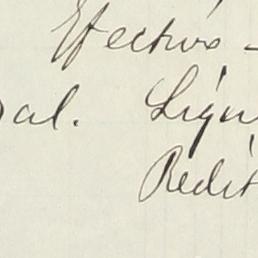 Efectivo -
al. Liqu
Redit